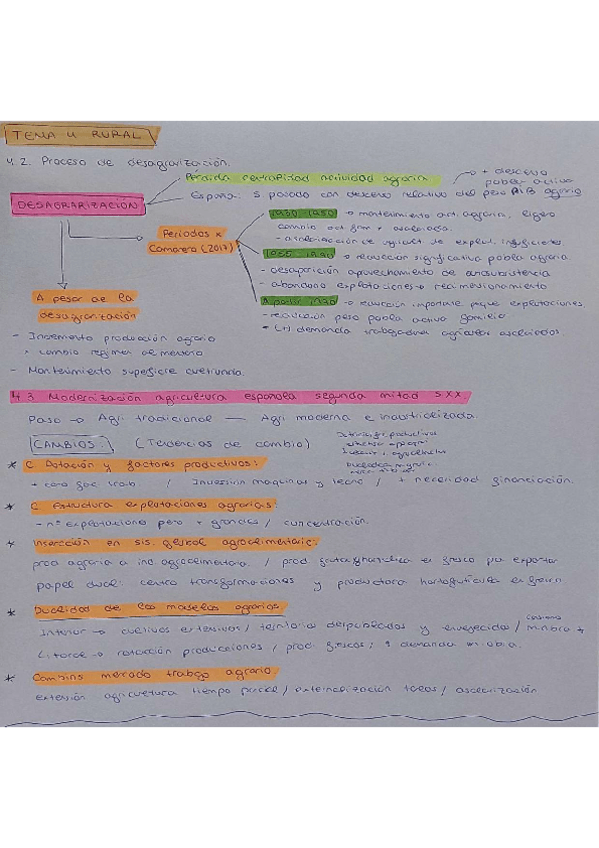 TEMA 4 RURAL
4.2. Proceso de desagrarización.
Pérdida centralidad actividad agraria
+ descenso poblac. activa
DESAGRARIZACIÓN
España: s. pasado con descenso relativo del peso PIB agrario
Periodos x Camarero (2017)
1930-1950 → mantenimiento act. agraria, ligero
cambio act. fam + asalariada.
1950-1990 → reducción significativa poblac. agraria.
- desaparición aprovechamiento de autosubsistencia
- abandono explotaciones → redimensionamiento
A partir 1990 → reducción importante peque explotaciones,
- reducción peso poblac activa familia
- (+) demanda trabajadores agrícolas asalariados
A pesar de la desagrarización
- Incremento producción agraria
+ cambio régimen alimentario
- Mantenimiento superficie cultivada.
4.3 Modernización agricultura española segunda mitad S.XX
Paso → Agri. tradicional — Agri moderna e industrializada.
CAMBIOS: (Tendencias de cambio)
* C. Dotación y factores productivos:
/ Inversión maquinas y tecno / + necesidad financiación.
* C. Estructura explotaciones agrarias:
- nº explotaciones pero + grandes / concentración.
* Inserción en sis. global agroalimentario:
prod agraria a ind. agroalimentaria. / prod. frutas y hortaliza en fresco pa exportar
papel dual: centro transformaciones y productora hortofrutícola en fresco.
* Dualidad de los modelos agrarios
Interior → cultivos extensivos / territorios despoblados y envejecidos /
Litoral → rotación producciones / prod. frescos; ↑ demanda m.obra.
* Cambios mercado trabajo agrario
extensión agricultura tiempo parcial / externalización tareas / asalarización